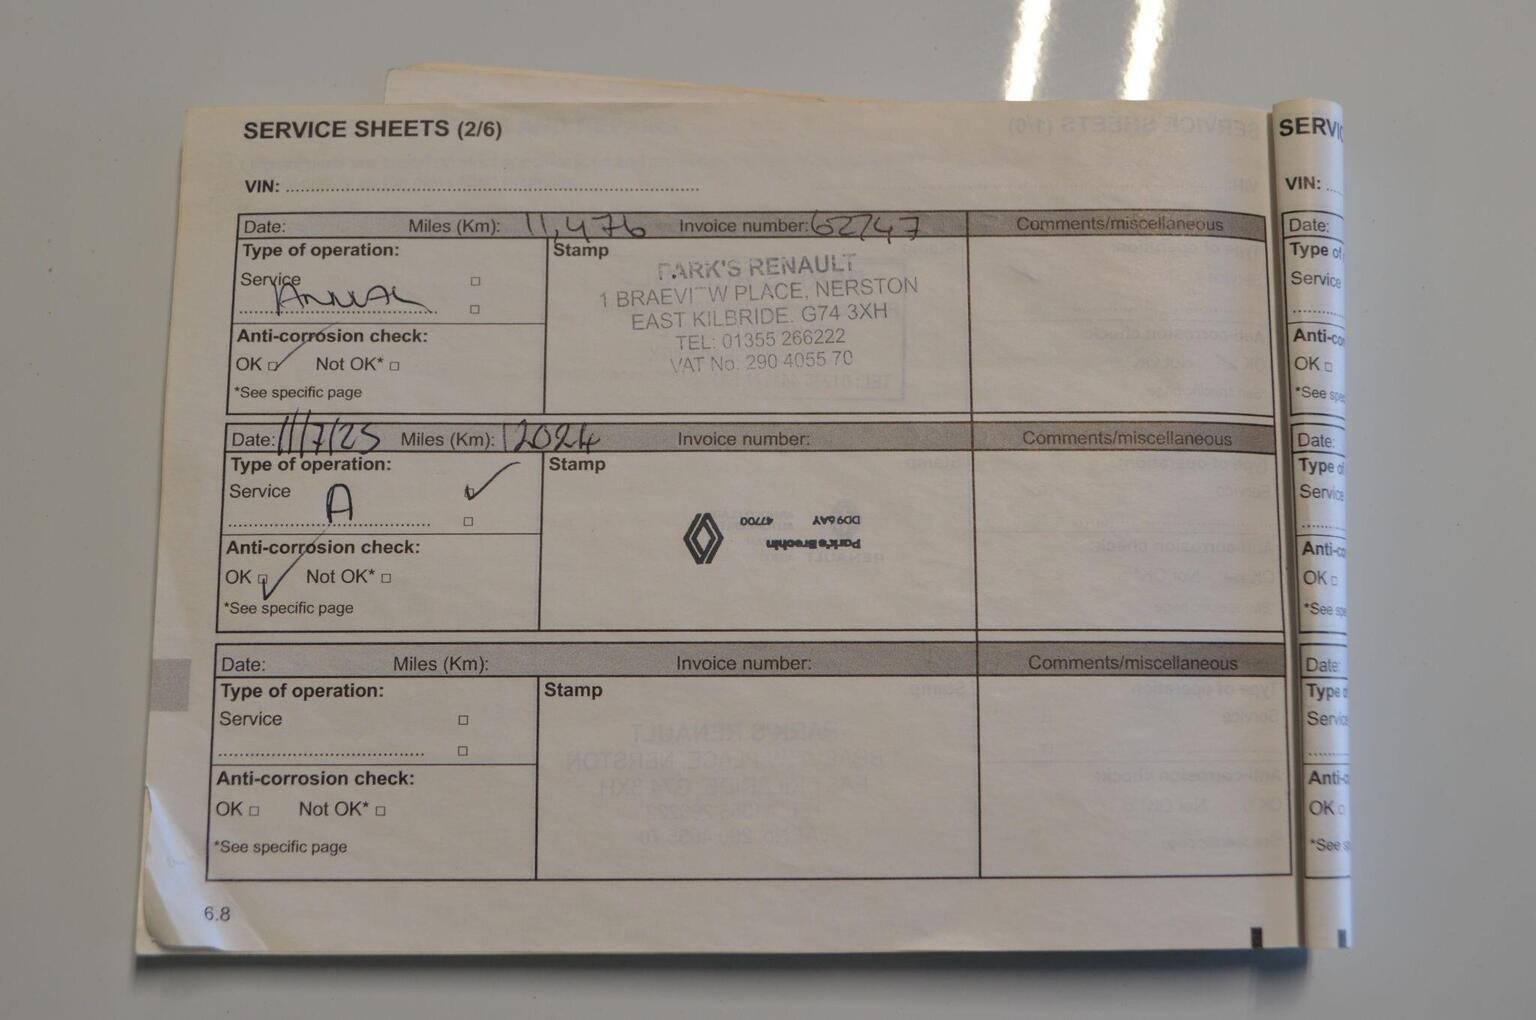 SERVICE SHEETS (2/6)
VIN:
Date: Miles (Km): 11,476 Invoice number: 62747 Comments/miscellaneous
Type of operation:
Service
ANNUAL
Anti-corrosion check:
OK Not OK*
*See specific page
Stamp
PARK'S RENAULT
1 BRAEVIEW PLACE, NERSTON
EAST KILBRIDE. G74 3XH
TEL: 01355 266222
VAT No. 290 4055 70
Date: 11/7/25 Miles (Km): 12024 Invoice number: Comments/miscellaneous
Type of operation:
Service
A
Anti-corrosion check:
OK Not OK*
*See specific page
Stamp
Park's Brechin
DD9 6AY 47700
Date: Miles (Km): Invoice number: Comments/miscellaneous
Type of operation:
Service
Anti-corrosion check:
OK Not OK*
*See specific page
Stamp
6.8
SERVIC
VIN:
Date:
Type of
Service
Anti-co
OK
*See spe
Date:
Type o
Service
Anti-c
OK
*See sp
Date:
Type o
Servic
Anti-
OK
*See s